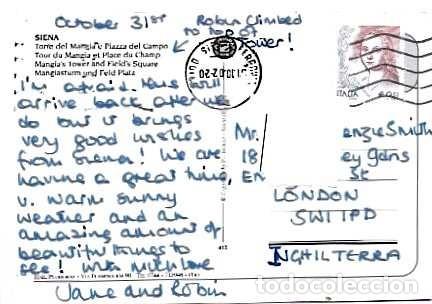 October 31st
Robin Climbed
to top of
Tower!
SIENA
Torre del Mangia e Piazza del Campo
Tour du Mangia et Place du Champ
Mangia's Tower and Field's Square
Mangiasturm und Feld Platz
I'm afraid this will
arrive back after we
do but it brings
very good wishes
from Siena! We are
having a great time,
v. warm sunny
weather and an
amazing amount of
beautiful things to
see! With much love
Jane and Robin
ITALIA
Mr.
enzie Smith
18
ey gdns
En
St
LONDON
SW1
INGHILTERRA
todocoleccion
todocoleccion.net